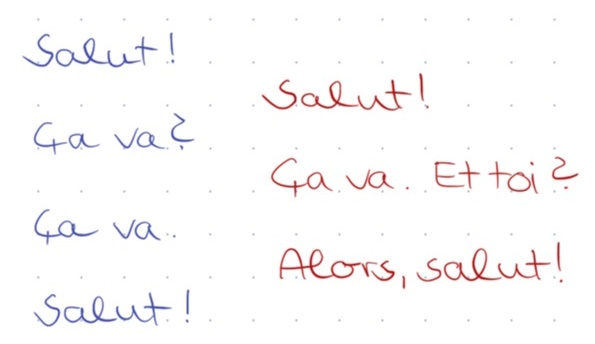 Salut!
Salut!
Ça va?
Ça va. Et toi?
Ça va.
Alors, salut!
Salut!